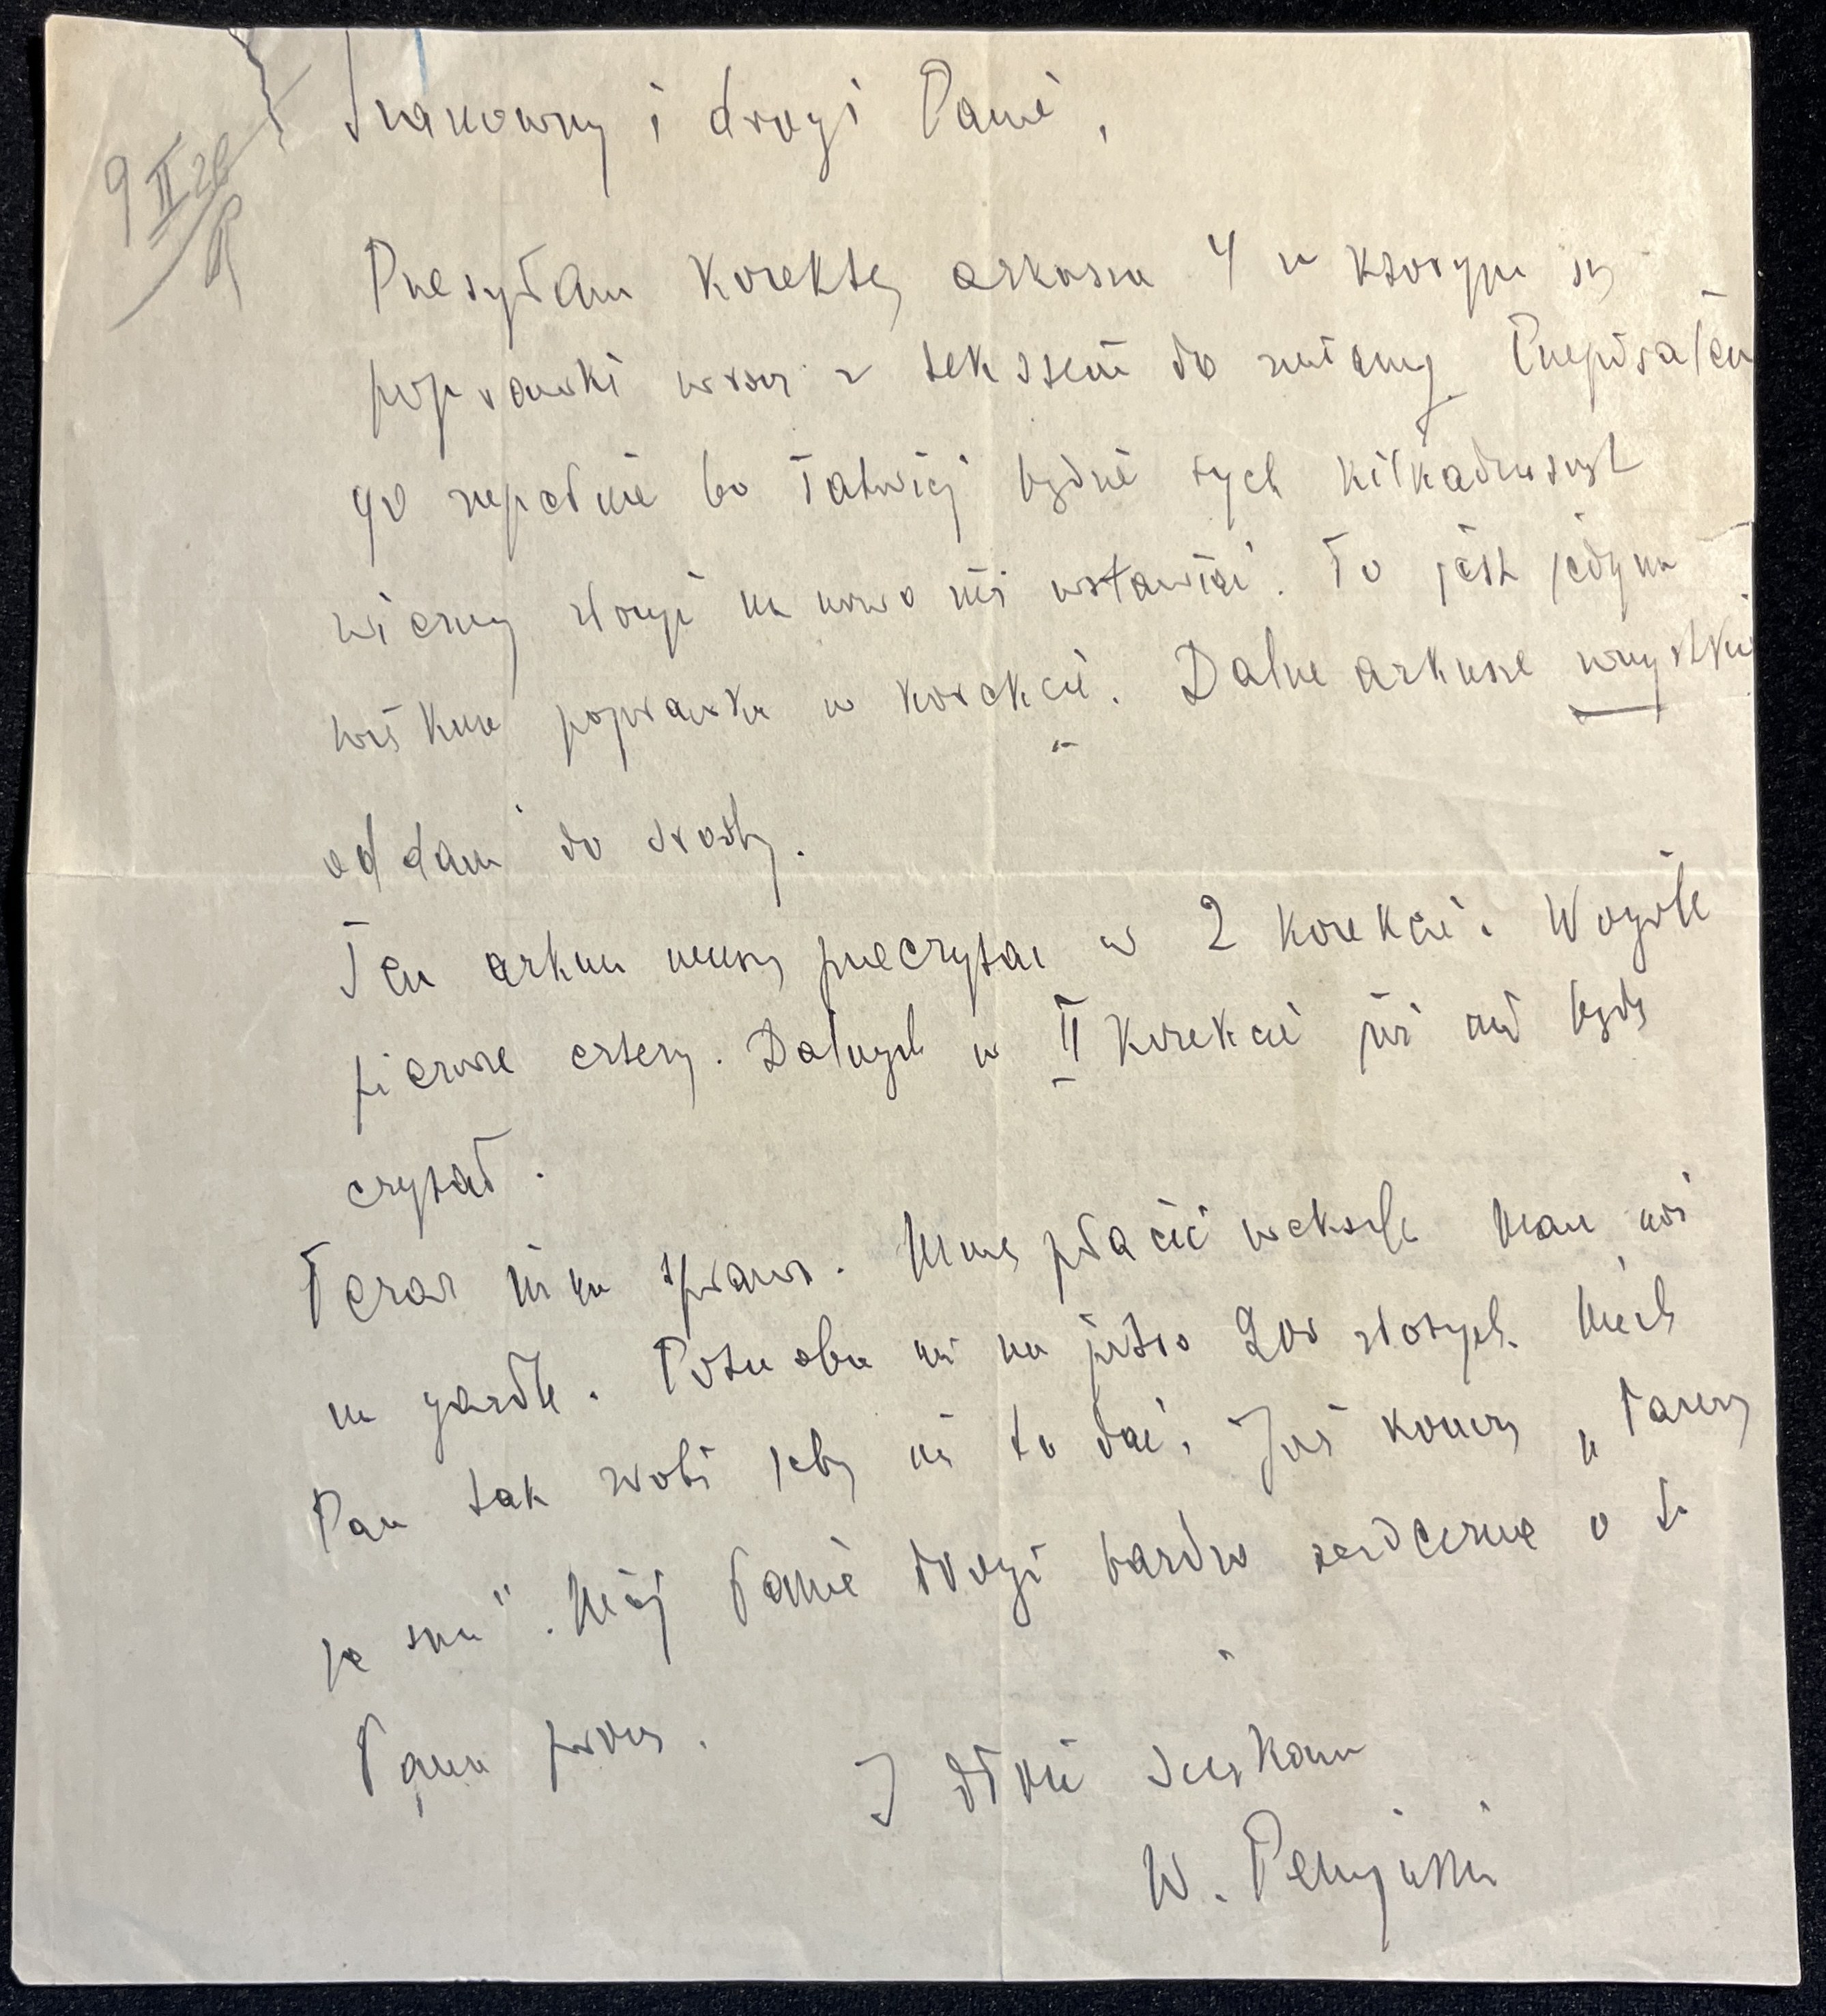 9 II 26
Szanowny i drogi Panie,
Przesyłam korektę arkusza 4 w którym są
poprawki wraz z tekstem do zmiany. Przepisałem
go zupełnie bo łatwiej będzie tych kilkadziesiąt
wierszy złożyć na nowo niż wstawiać. To jest jedyna
większa poprawka w korekcie. Dalsze arkusze wszystkie
oddam do środy.
Ten arkusz muszę przeczytać w 2 korekcie. Wogóle
pierwsze cztery. Dalszych w II korekcie już nie będę
czytał.
Teraz inna sprawa. Muszę płacić weksle. Mam nóż
na gardle. Potrzeba mi na jutro 200 złotych. Niech
Pan tak zrobi żeby mi to dać. Już kończę „
". Mój Panie drogi bardzo serdecznie o to
Pana proszę.
I dłoń ściskam
W. Perzyński